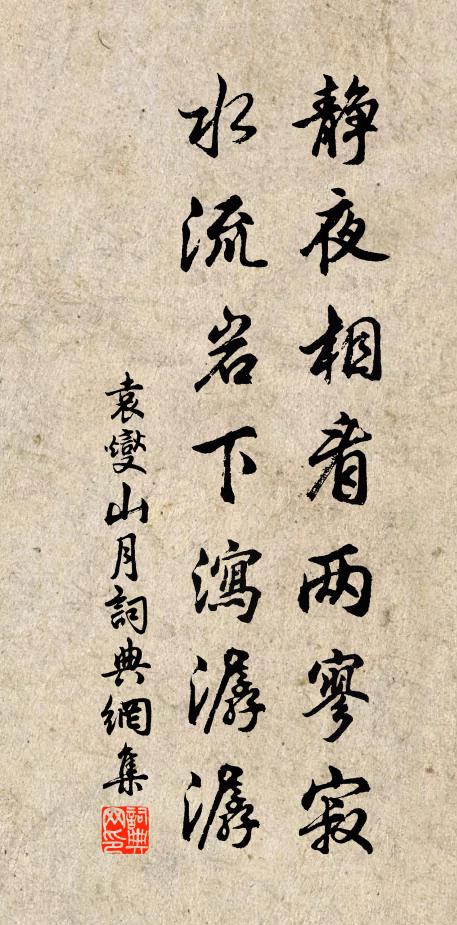 静夜相看两寥寂
水流岩下瀉潺潺
袁燮山月詞典網集
詞典
网印